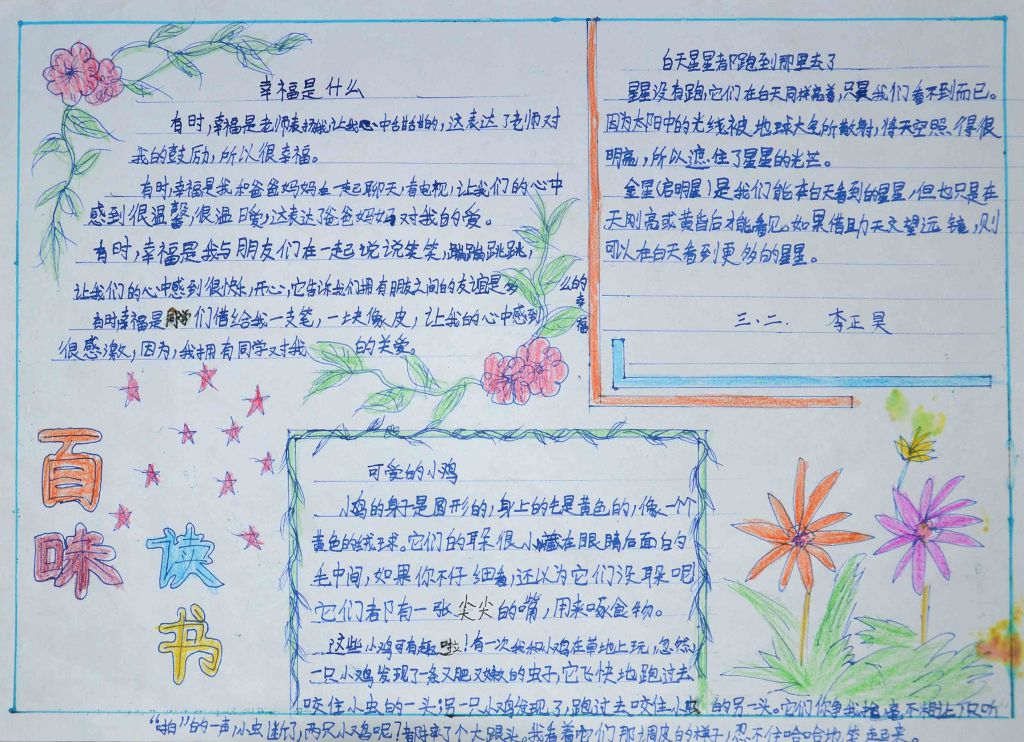 幸福是什么
有时,幸福是老师表扬我,让我心中甜甜的,这表达了老师对
我的鼓励,所以很幸福。
有时,幸福是我和爸爸妈妈在一起聊天,看电视,让我们的心中
感到很温馨,很温暖,这表达了爸爸妈妈对我的爱。
有时,幸福是我与朋友们在一起说说笑笑,蹦蹦跳跳,
让我们的心中感到很快乐,开心,它告诉我们拥有朋友之间的友谊是多么的幸福
有时幸福是同学们借给我一支笔,一块像皮,让我的心中感到
很感激,因为,我拥有同学对我的关爱。
白天星星都跑到那里去了
星星没有跑,它们在白天同样亮着,只是我们看不到而已。
因为太阳中的光线被地球大气所散射,将天空照得很
明亮,所以遮住了星星的光芒。
金星(启明星)是我们能在白天看到的星星,但也只是在
天刚亮或黄昏后才能看见。如果借助天文望远镜,则
可以在白天看到更多的星星。
三、二. 李正昊
百味
读书
可爱的小鸡
小鸡的身子是圆形的,身上的毛是黄色的,像一个
黄色的绒球。它们的耳朵很小藏在眼睛后面的
毛中间,如果你不仔细看,还以为它们没耳朵呢
它们都有一张尖尖的嘴,用来啄食物。
这些小鸡可有趣啦!有一次我和小鸡在草地上玩,忽然
一只小鸡发现了一条又肥又嫩的虫子,它飞快地跑过去
咬住小虫的一头;另一只小鸡发现了,跑过去咬住小虫的另一头。它们你争我抢毫不相让,只听
“拍”的一声,小虫断了,两只小鸡呢?都摔了个大跟头。我看着它们那调皮的样子,忍不住哈哈地笑起来。